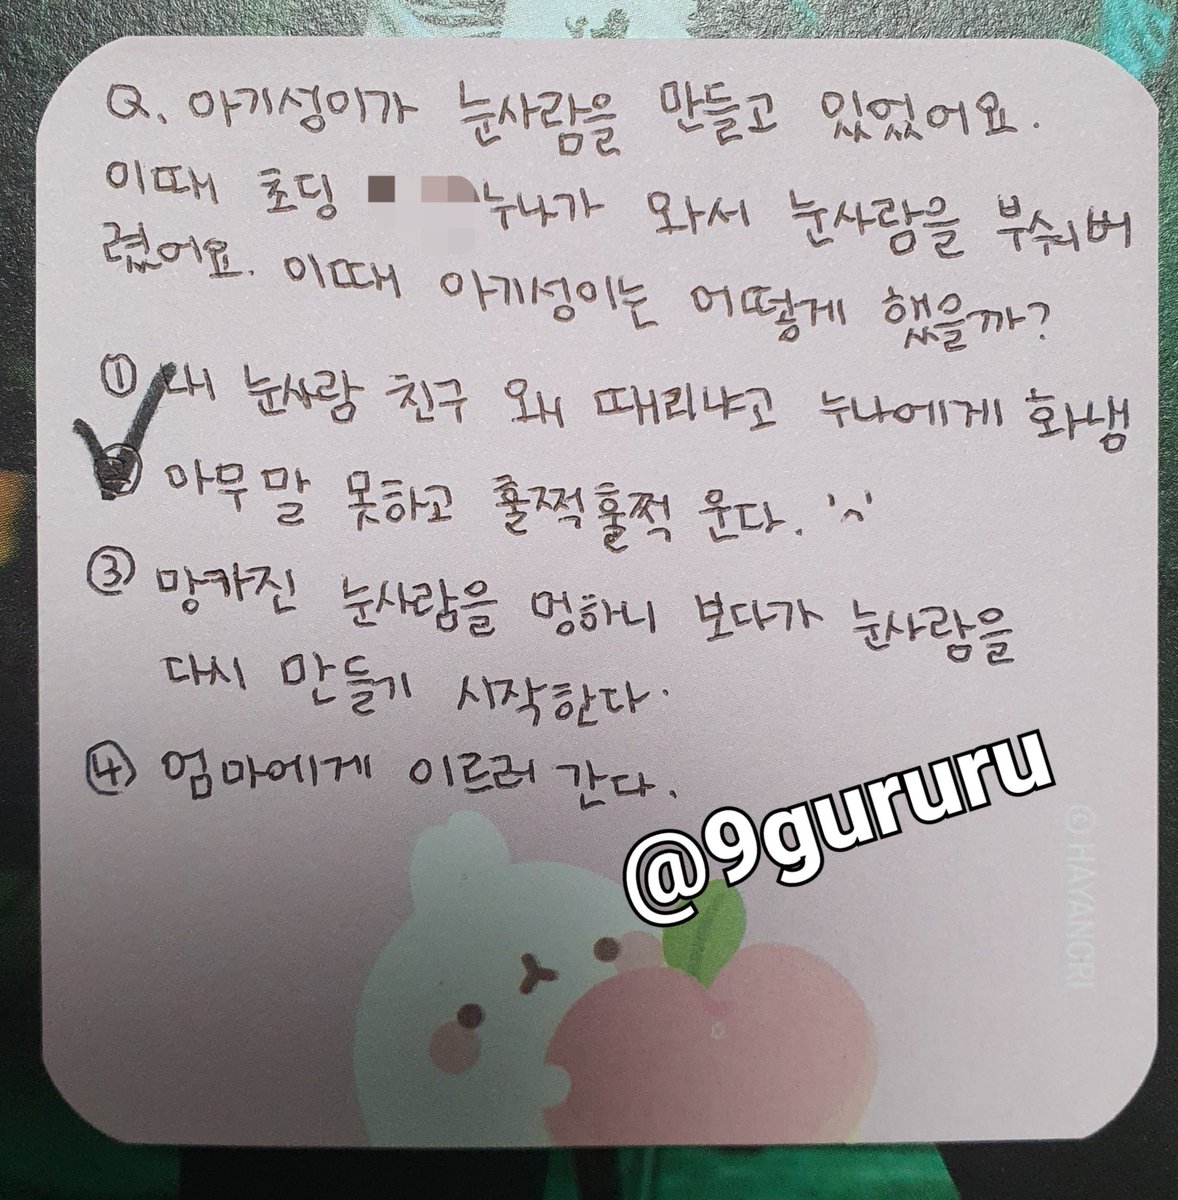 Q. 아기성이가 눈사람을 만들고 있었어요.
이때 초딩 누나가 와서 눈사람을 부숴버
렸어요. 이때 아기성이는 어떻게 했을까?
① 내 눈사람 친구 왜 때리냐고 누나에게 화냄
② 아무말 못하고 훌쩍훌쩍 운다. '^'
③ 망가진 눈사람을 멍하니 보다가 눈사람을
다시 만들기 시작한다.
④ 엄마에게 이르러 간다.
@9gururu
© HAYANORI